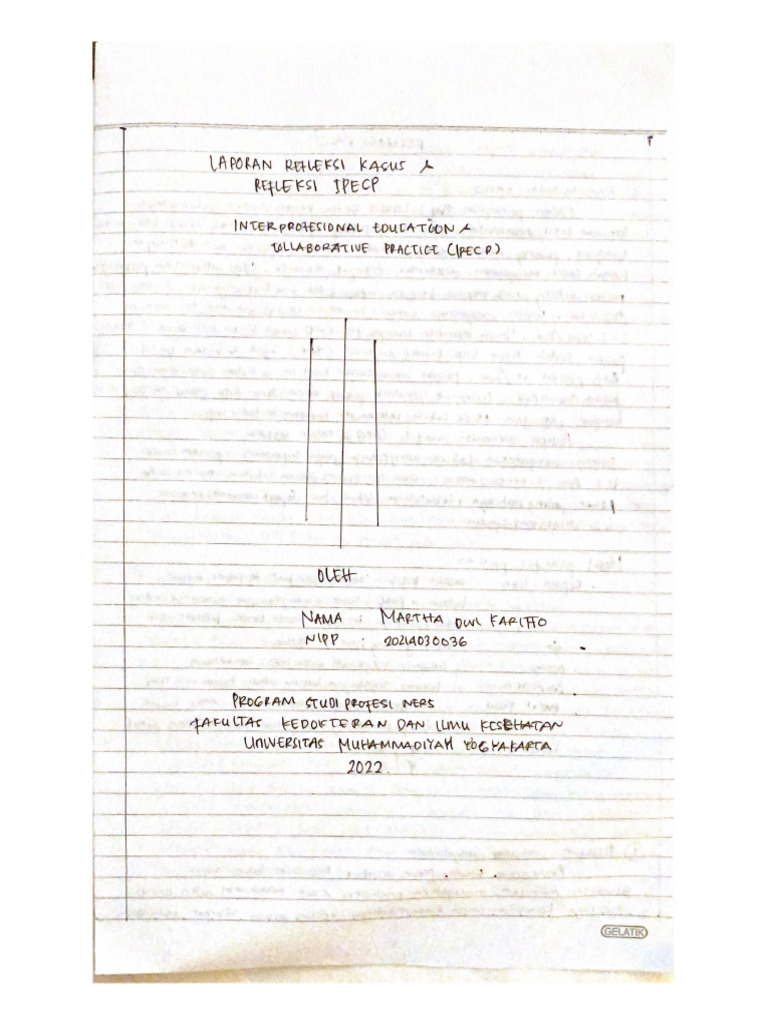 LAPORAN REFLEKSI KASUS &
REFLEKSI IPECP
INTERPROFESIONAL EDUCATION &
COLLABORATIVE PRACTICE (IPECP)
OLEH
NAMA : MARTHA DWI
NIPP : 20214030036
PROGRAM STUDI PROFESI NERS
FAKULTAS KEDOKTERAN DAN ILMU KESEHATAN
UNIVERSITAS MUHAMMADIYAH YOGYAKARTA
2022.
GELATIK